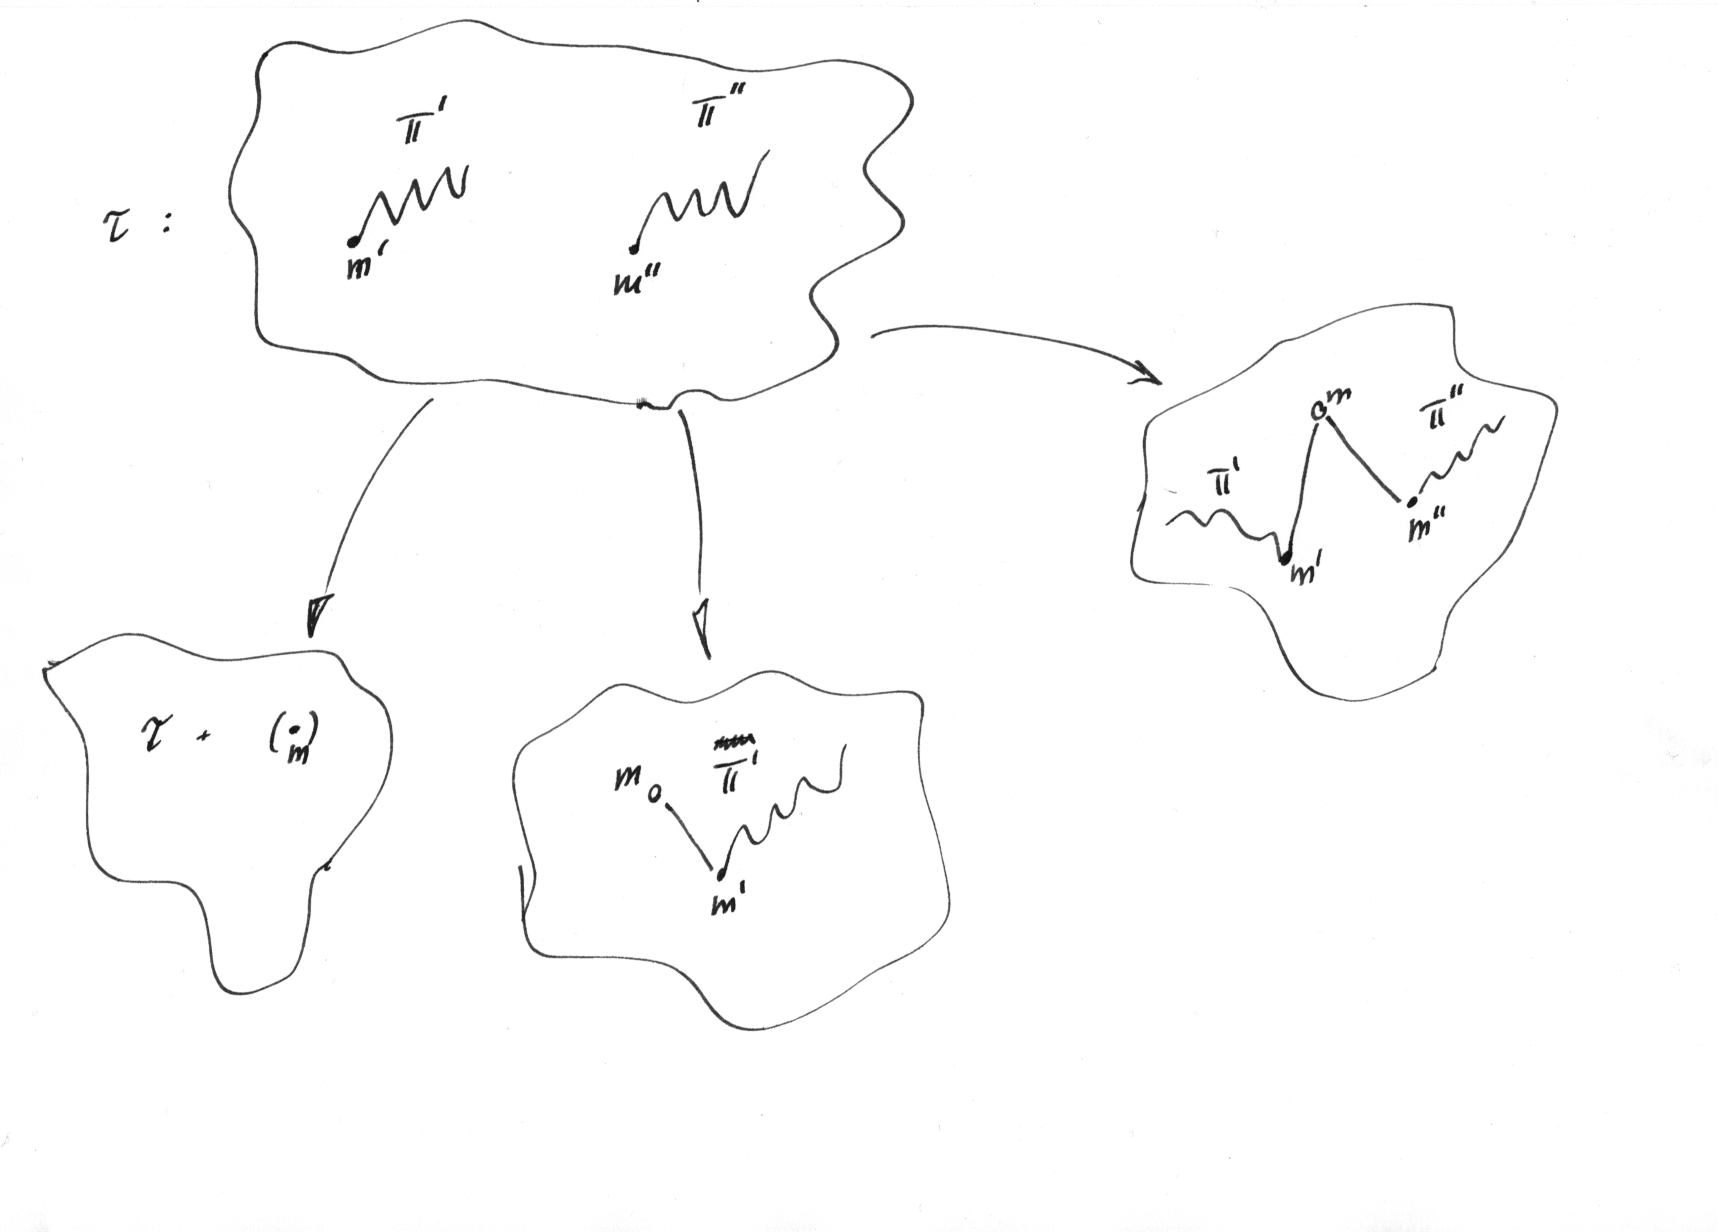 π' π''
τ :
m' m''
m π''
π'
m''
m'
τ + (m)
m π'
m'